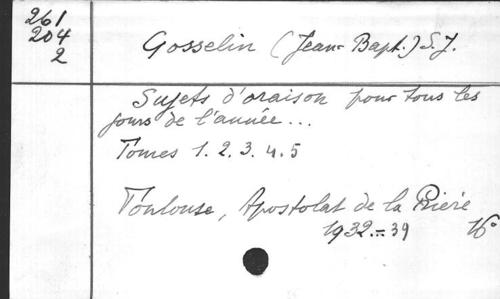 261
204
2
Gosselin (Jean-Bapt.) S.J.
Sujets d'oraison pour tous les
jours de l'année...
Tomes 1.2.3.4.5
Toulouse, Apostolat de la Prière
1932=39 16°